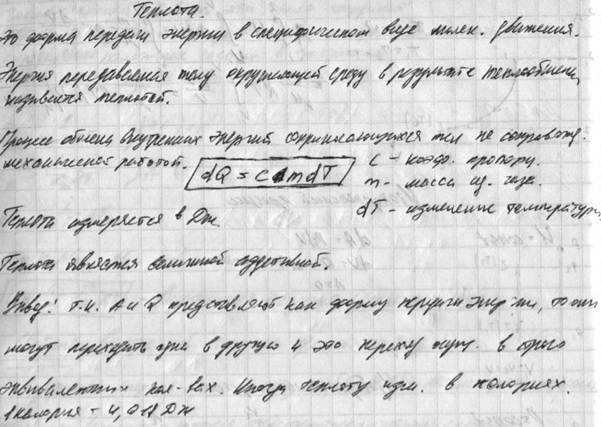 Теплота.
Это форма передачи энергии в специфическом виде молек. движения.
Энергия передаваемая телу окружающей среду в результате теплообмена,
называется теплотой.
Процесс обмена внутренних энергий соприкасающихся тел не сопровожд.
механической работой. dQ = c m dT C - коэф. пропорц.
m - масса газа.
Теплота измеряется в Дж. dT - изменение температуры
Теплота является величиной аддитивной.
Вывод: т.к. A и Q представляют как форму передачи энергии, то они
могут переходить одна в другую и это переход в строго
эквивалентных кол-вах. Иногда теплоту изм. в калориях.
1 калория = 4,18 Дж